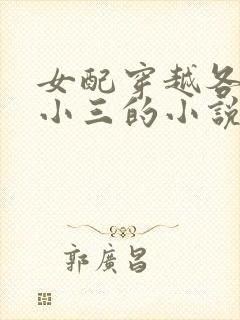 女配穿越各
小三的小說
郭廣昌